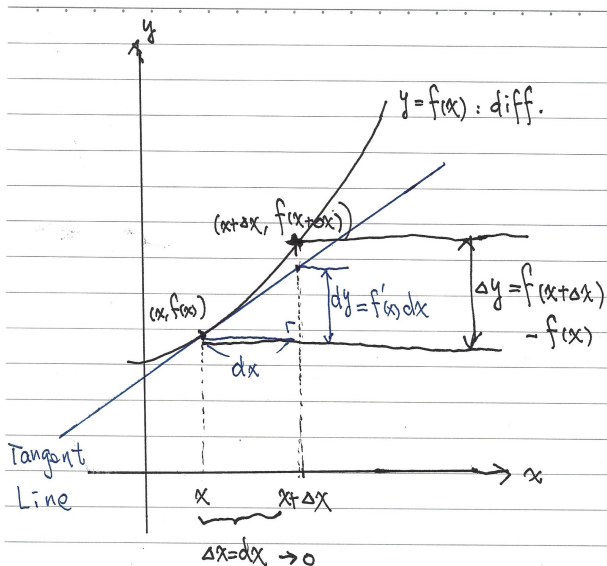 y
y=f(x) : diff.
(x+Δx, f(x+Δx))
(x, f(x))
dy=f'(x)dx
Δy=f(x+Δx)
-f(x)
dx
Tangent
Line
x
x
x+Δx
Δx=dx →0